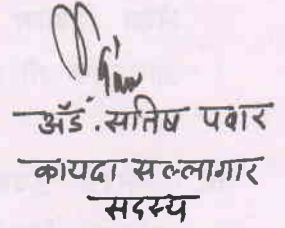 ॲड. सतिष पवार
कायदा सल्लागार
सदस्य